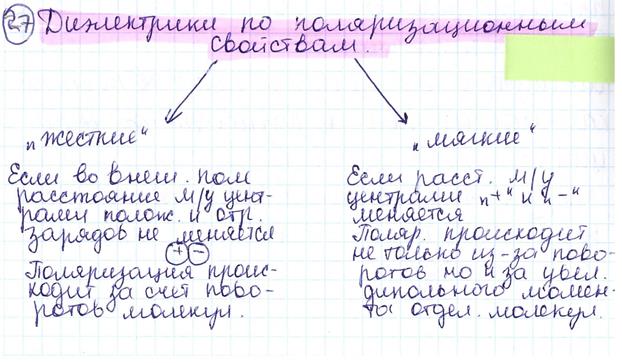 27 Диэлектрики по поляризационным
свойствам.
„жесткие“
Если во внеш. поле
расстояние м/у цент-
рами полож. и отр.
зарядов не меняется
+ -
Поляризация проис-
ходит за счет пово-
ротов молекул.
„мягкие“
Если расст. м/у
центрами „+“ и „-“
меняется
Поляр. происходит
не только из-за пово-
ротов но и за увел.
дипольного момен-
та отдел. молекул.